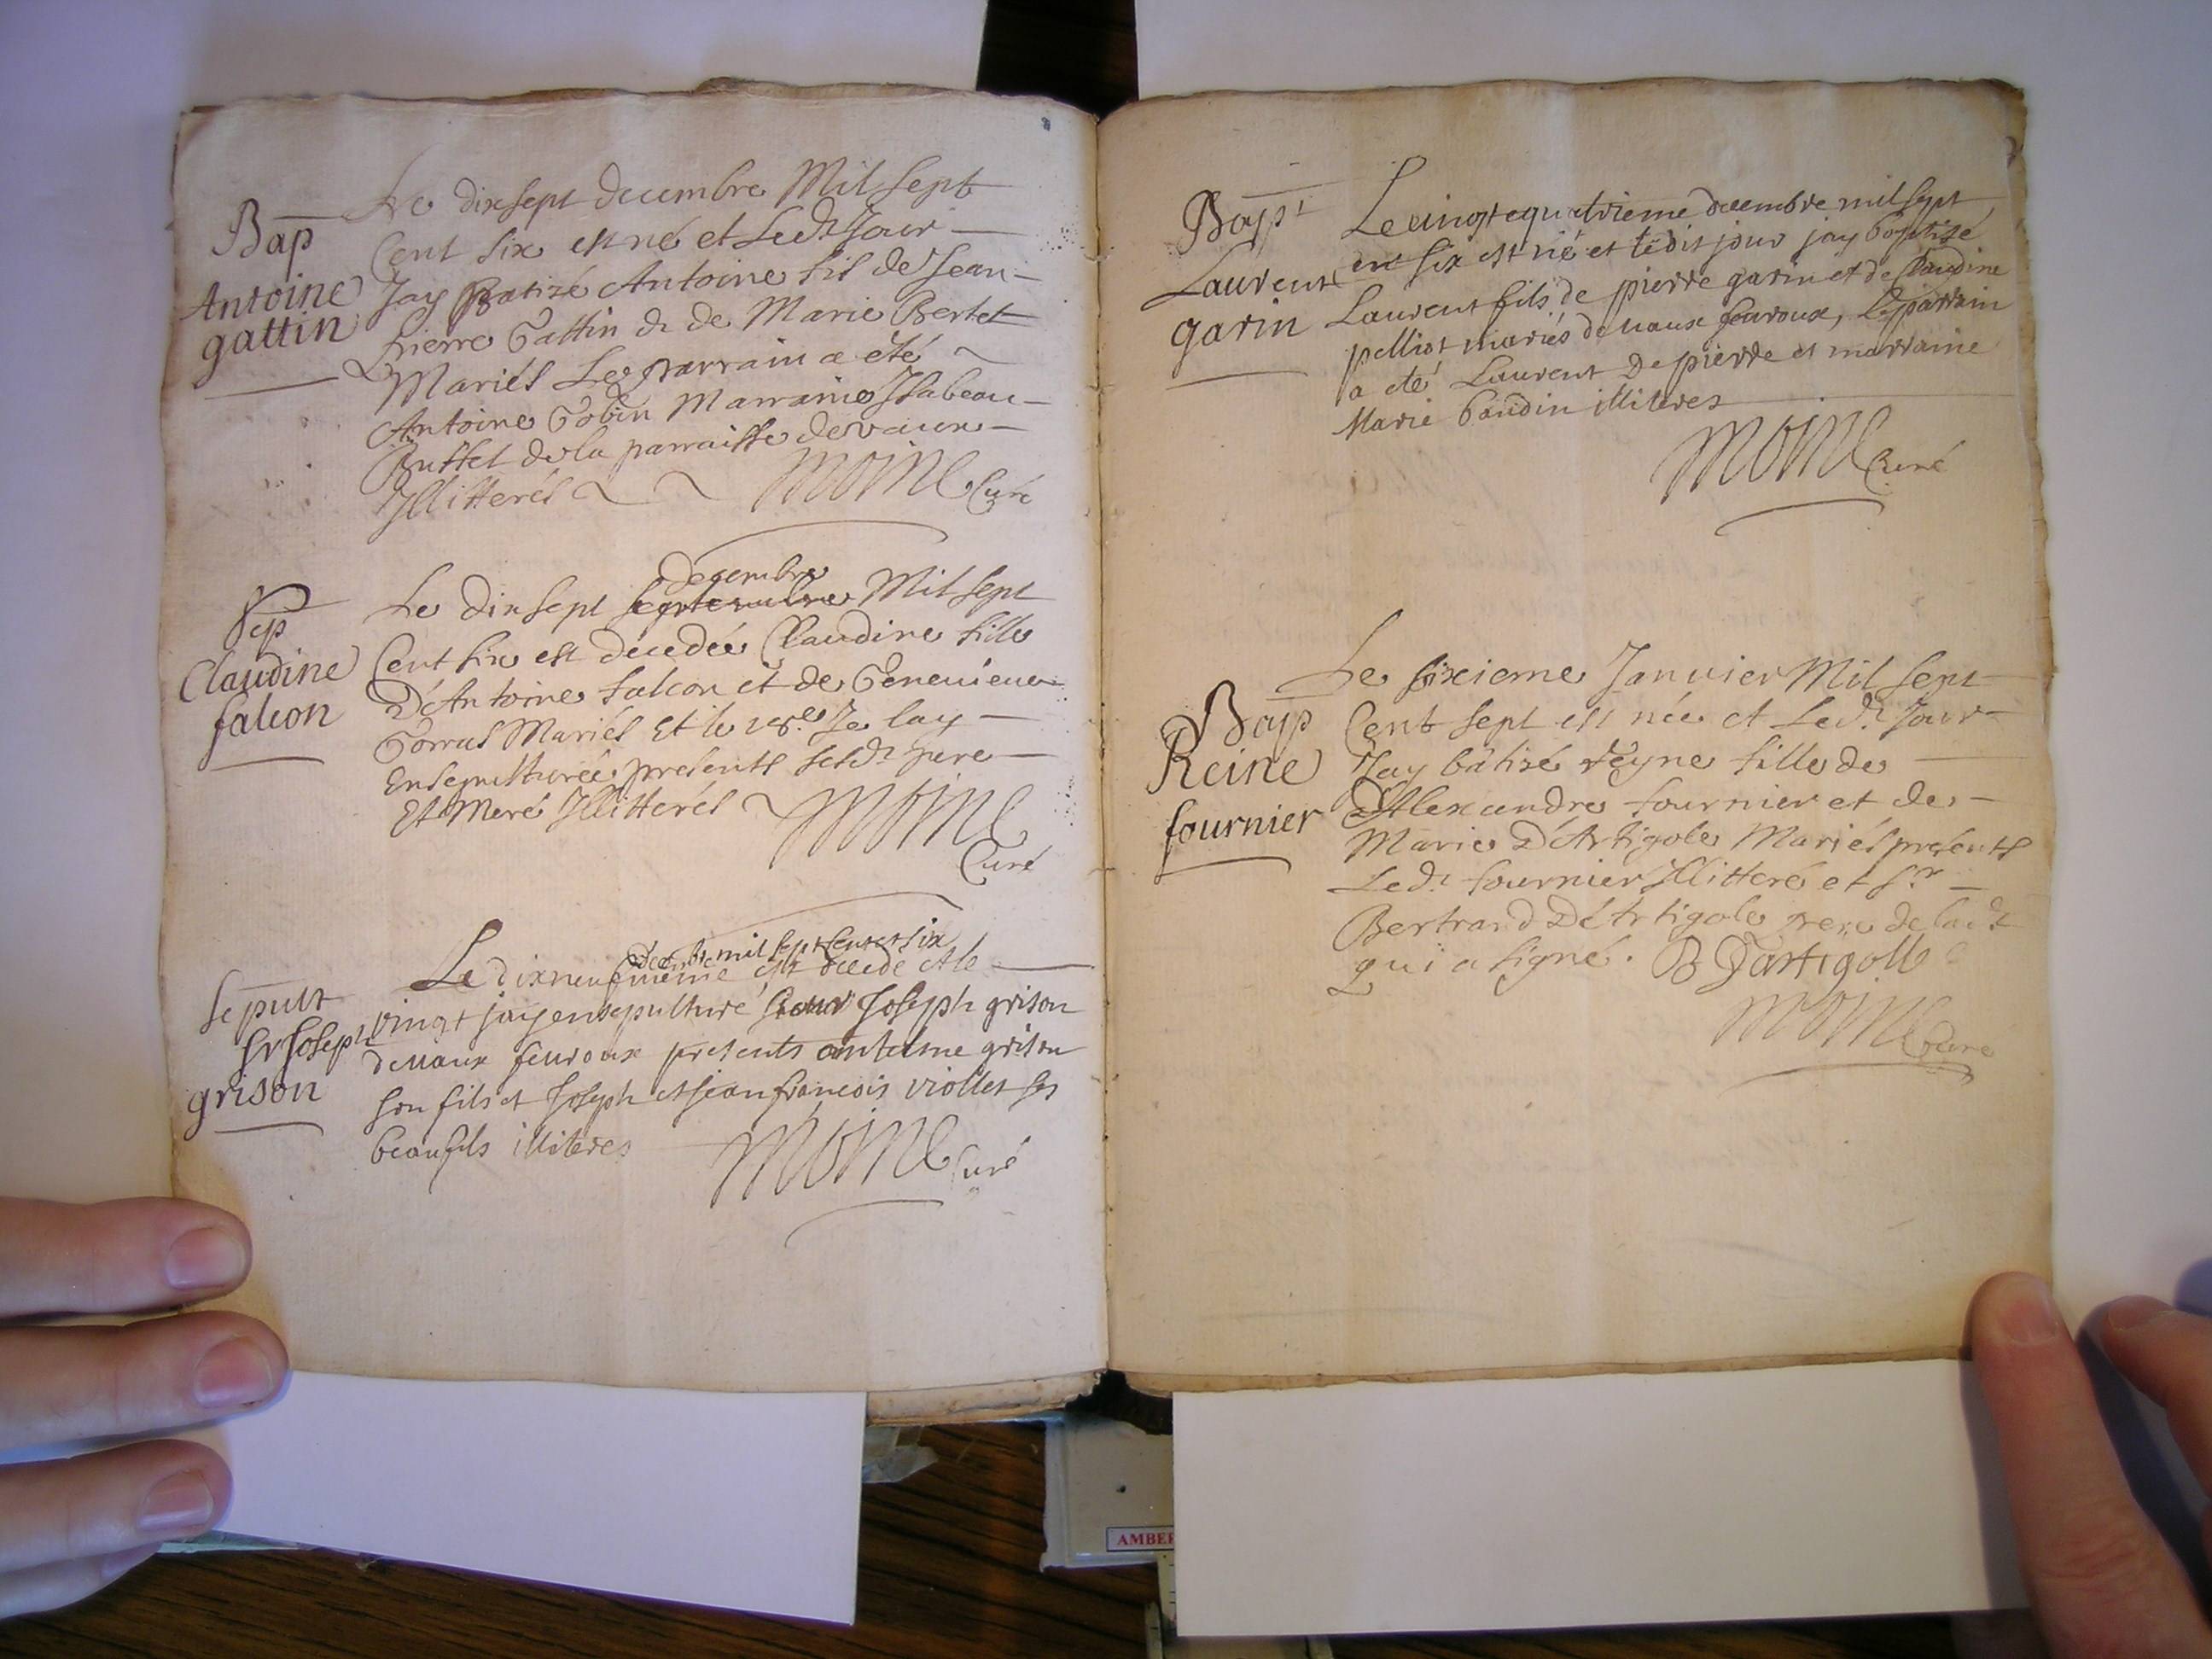 Bap
Antoine
gattin
Le dixsept decembre Mil sept
Cent six est né et Ledt Jour
Jay Batizé Antoine fil de Jean
Pierre Gattin & de Marie Bertet
Mariés Le parrain a été
Antoine Gobin Marraine Isabeau
Buffet de la parraisse de vaux
Illitterés Moine Curé
Sep
Claudine
falcon
Le dixsept septembre decembre Mil sept
Cent six est décedée Claudine fille
D'Antoine falcon et de Genevieve
Gorras Mariés Et le 18.e Je lay
Ensepulturée presents sesdt pere
Et Mere Illitterés Moine
Curé
Sepult
Sr Joseph
grison
Le dixneufvieme decembre mil sept cent et six est decedé et le
vingt jay ensepulturé sieur Joseph grison
de vaux feuroux presents antelme grison
son fils et Joseph et jean francois viollet ses
beaufils illiteres Moine Curé
Bapt
Laurent
garin
Le vingt e quatrieme decembre mil sept
cent six est né et ledit jour jay baptisé
Laurent fils de pierre garin et de Claudine
pelliot mariés de vaux feuroux, le parrain
a eté Laurent De pierre et marraine
Marie baudin illiteres
Moine Curé
Bap
Reine
fournier
Le sixieme Janvier Mil sept
Cent sept est née et Ledt Jour
Jay bâtisé reyne fille de
d'Alexandre fournier et de
Marie D'Artigole Mariés presents
Ledt fournier Illitteré et Sr
Bertrand D'Artigole pere de ladt
qui a signé. B Dartigolle
Moine Curé
AMBER